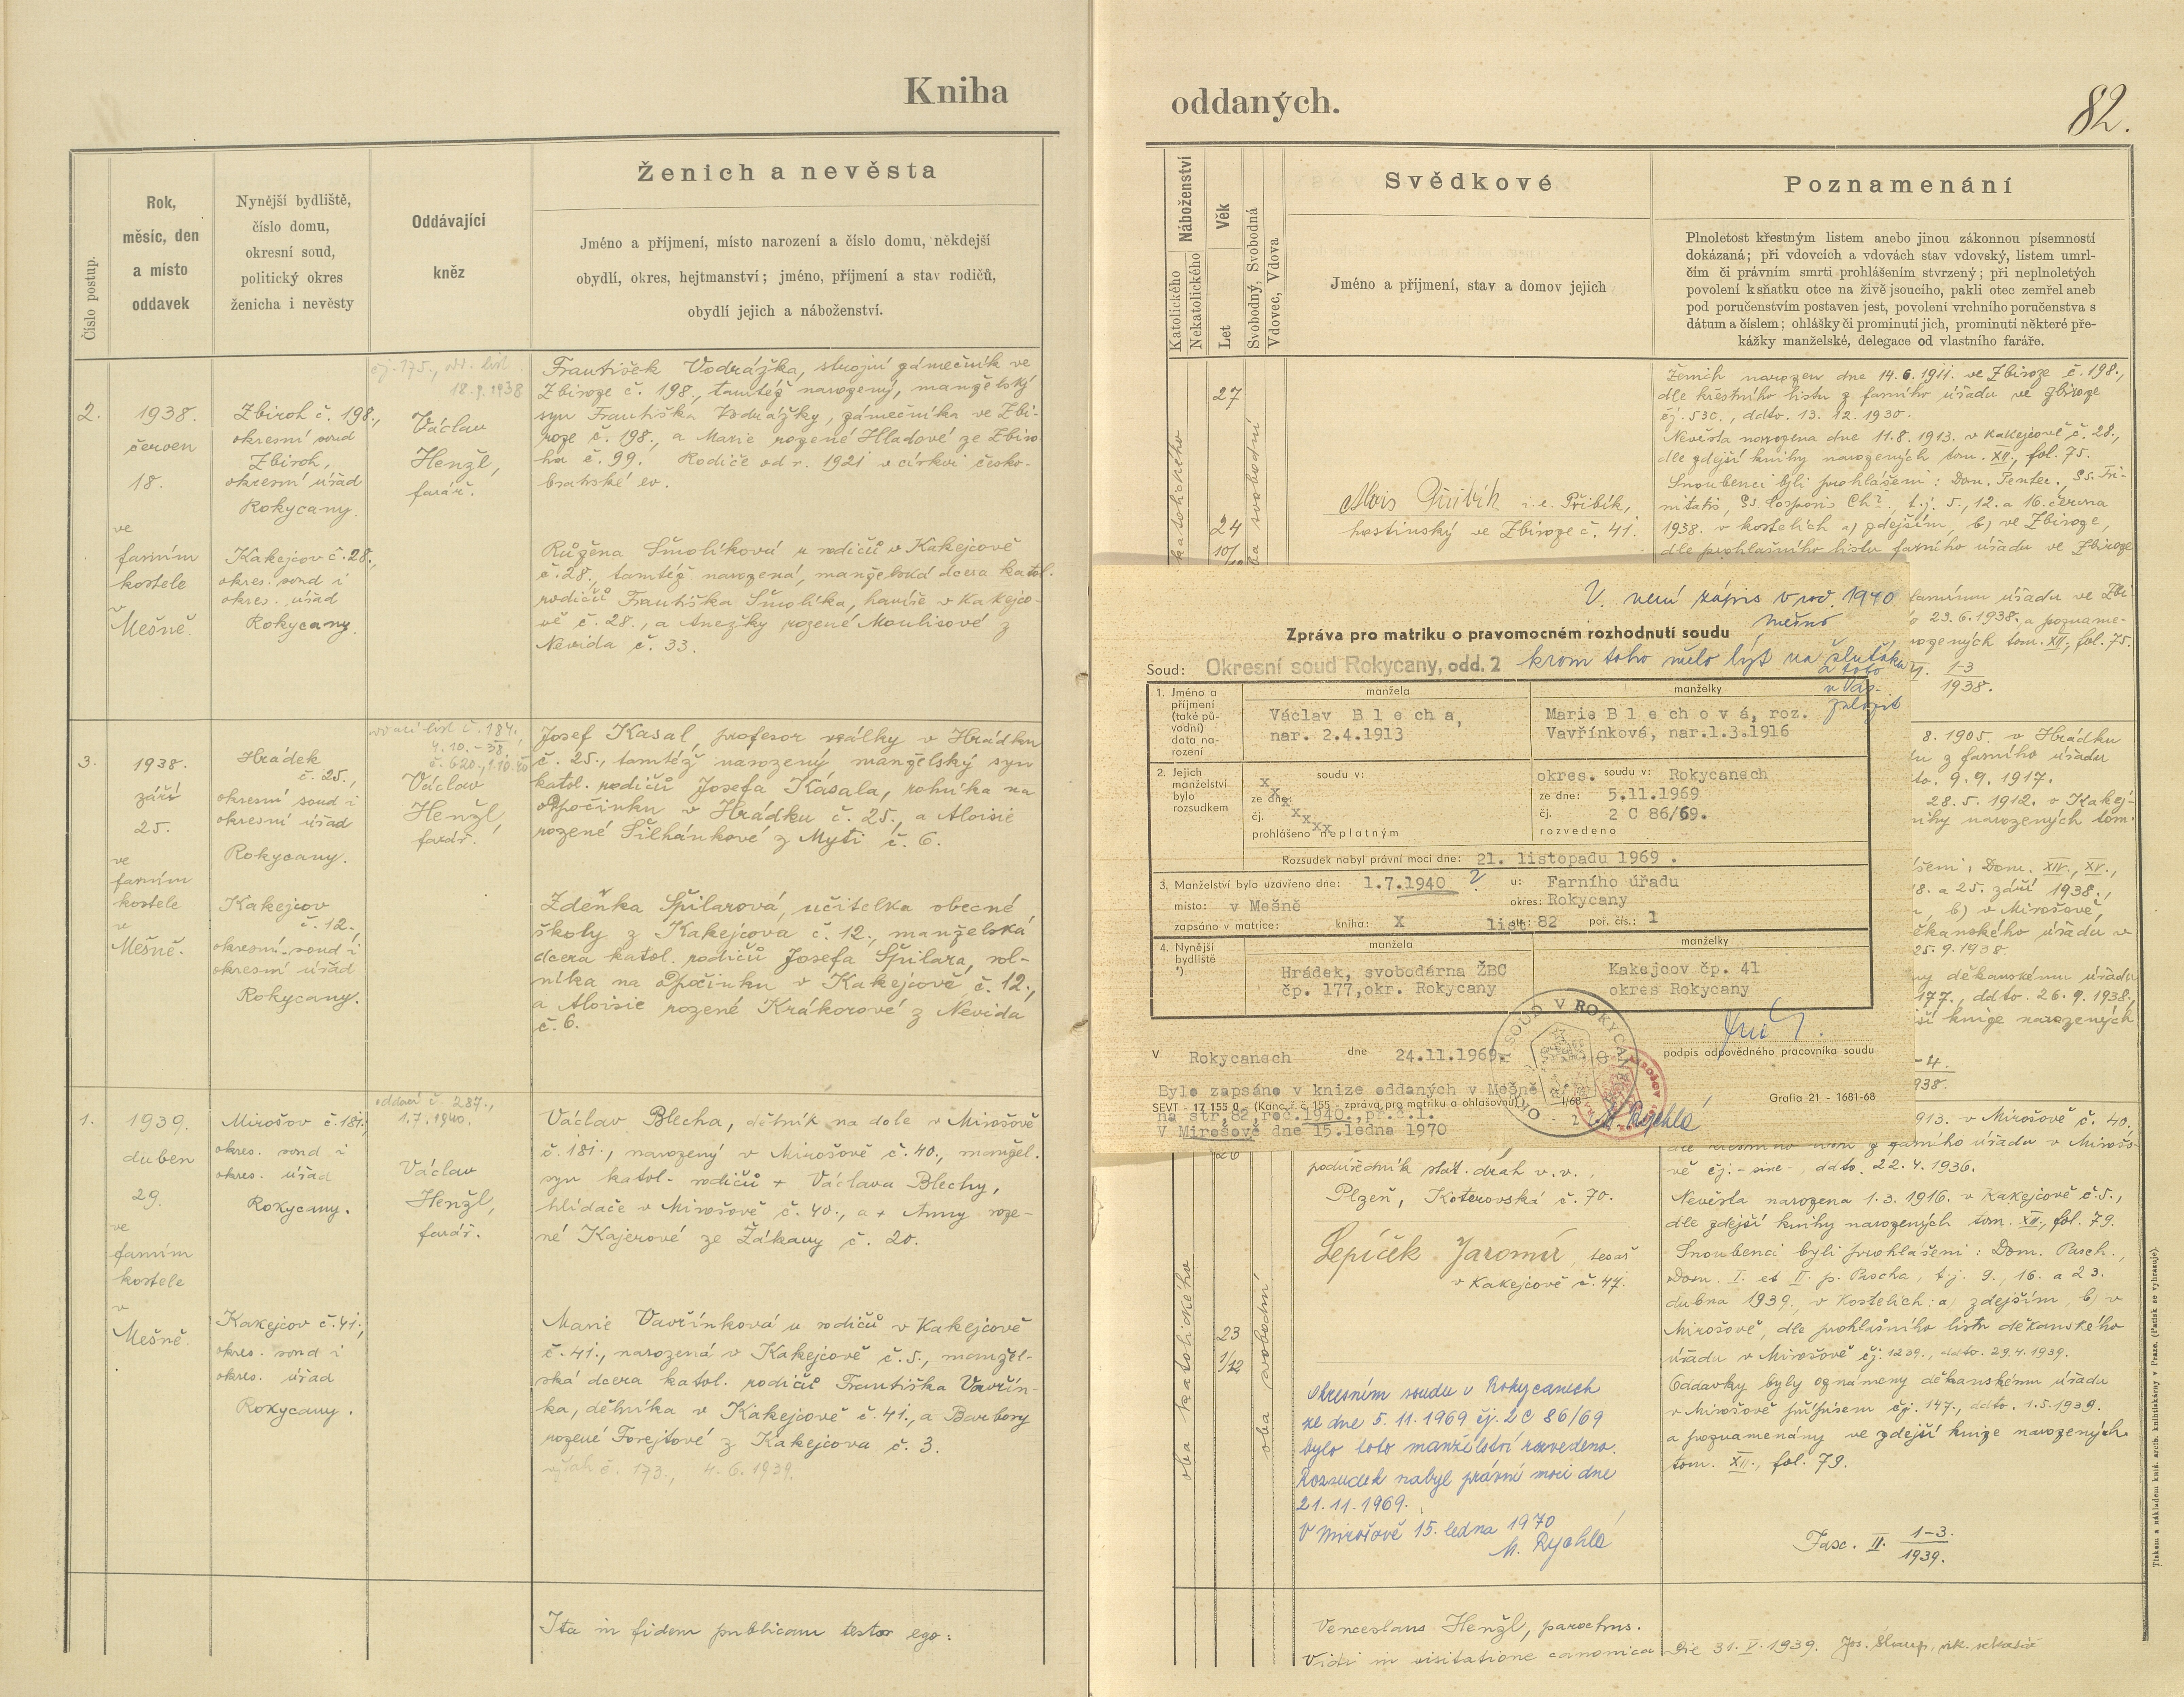 Kniha
oddaných.
82.
Číslo postup.
Rok,
měsíc, den
a místo
oddavek
Nynější bydliště,
číslo domu,
okresní soud,
politický okres
ženicha i nevěsty
Oddávající
kněz
Ženich a nevěsta
Jméno a příjmení, místo narození a číslo domu, někdejší
obydlí, okres, hejtmanství; jméno, příjmení a stav rodičů,
obydlí jejich a náboženství.
Náboženství
Katolického
Nekatolického
Věk
Let
Svobodný, Svobodná
Vdovec, Vdova
Svědkové
Jméno a příjmení, stav a domov jejich
Poznamenání
Plnoletost křestným listem anebo jinou zákonnou písemností
dokázaná; při vdovcích a vdovách stav vdovský, listem umrl-
čím či právním smrti prohlášením stvrzený; při neplnoletých
povolení k sňatku otce na živě jsoucího, pakli otec zemřel aneb
pod poručenstvím postaven jest, povolení vrchního poručenstva s
dátum a číslem; ohlášky či prominutí jich, prominutí některé pře-
kážky manželské, delegace od vlastního faráře.
2.
1938.
červen
18.
ve
farním
kostele
v
Mešně.
Zbiroh č. 198.,
okresní soud
Zbiroh,
okresní úřad
Rokycany.
Kakejcov č. 28.,
okres. soud i
okres. úřad
Rokycany.
čj. 175., od. list
18.9.1938
Václav
Henžl,
farář.
František Vodrážka, strojní zámečník ve
Zbiroze č. 198., tamtéž narozený, manželský
syn Františka Vodrážky, zámečníka ve Zbi-
roze č. 198., a Marie rozené Hladové ze Zbiro-
ha č. 99. Rodiče od r. 1921 v církvi česko-
bratrské ev.
Růžena Šmolíková u rodičů v Kakejcově
č. 28., tamtéž narozená, manželská dcera katol.
rodičů Františka Šmolíka, havíře v Kakejco-
vě č. 28., a Anežky rozené Moulisové z
Nevida č. 33.
27
24
10/
Alois Přibík i.e. Přibík,
hostinský ve Zbiroze č. 41.
Ženich narozen dne 14.6.1911. ve Zbiroze č. 198.,
dle křestního listu z farního úřadu ve Zbiroze
čj. 530., ddto. 13. 12. 1930.
Nevěsta narozena dne 11.8.1913. v Kakejcově č. 28.,
dle zdejší knihy narozených tom. XII., fol. 75.
Snoubenci byli prohlášeni: Dom. Pentec., Ss. Tri-
nitatis, Ss Corporis Chr., t.j. 5., 12. a 16. června
1938. v kostelích a) zdejším, b) ve Zbiroze,
dle prohlašního listu farního úřadu ve Zbiroze
farnímu úřadu ve Zbi-
23.6.1938., a pozname-
rozených tom. XII., fol. 75.
1-3
1938.
3.
1938.
září
25.
ve
farním
kostele
v
Mešně.
Hrádek
č. 25.,
okresní soud i
okresní úřad
Rokycany.
Kakejcov
č. 12.,
okresní soud i
okresní úřad
Rokycany.
list č. 184.,
4.10.-38.
č. 620., 1.10.40
Václav
Henžl,
farář.
Josef Kasal, profesor reálky v Hrádku
č. 25., tamtéž narozený manželský syn
katol. rodičů Josefa Kasala, rolníka na
odpočinku v Hrádku č. 25., a Aloisie
rozené Šilhánkové z Mýti č. 6.
Zdeňka Špilarová, učitelka obecné
školy z Kakejcova č. 12., manželská
dcera katol. rodičů Josefa Špilara, rol-
níka na odpočinku v Kakejcově č. 12.,
a Aloisie rozené Krákorové z Nevida
č. 6.
8. 1905. v Hrádku
z farního úřadu
to. 9.9. 1917.
28.5. 1912. v Kakej-
nihy narozených tom.
šeni: Dom. XIV., XV.,
18. a 25. září 1938.,
b) v Mirošově,
ěkanského úřadu v
25.9.1938.
ny děkanskému úřadu
177., ddto. 26.9.1938.,
ší knize narozených
-4.
938.
V. není zápis v roč. 1940
Mešno
Zpráva pro matriku o pravomocném rozhodnutí soudu
Soud: Okresní soud Rokycany, odd. 2
krom toho mělo být na
a toto
u Vás
založit
1. Jméno a
příjmení
(také pů-
vodní)
data na-
rození
manžela
Václav B l e ch a,
nar. 2.4.1913
manželky
Marie B l e ch o v á, roz.
Vavřínková, nar.1.3.1916
2. Jejich
manželství
bylo
rozsudkem
soudu v:
ze dne:
čj.
prohlášeno neplatným
okres. soudu v: Rokycanech
ze dne: 5.11.1969
čj. 2 C 86/69.
rozvedeno
Rozsudek nabyl právní moci dne: 21. listopadu 1969 .
3. Manželství bylo uzavřeno dne: 1.7.1940 ? u: Farního úřadu
místo: v Mešně okres: Rokycany
zapsáno v matrice: kniha: X list: 82 poř. čís.: 1
4. Nynější
bydliště
*)
manžela
Hrádek, svobodárna ŽBC
čp. 177,okr. Rokycany
manželky
Kakejcov čp. 41
okres Rokycany
V Rokycanech dne 24.11.1969.
podpis odpovědného pracovníka soudu
SOUD V ROKYCANECH
Bylo zapsáno v knize oddaných v Mešně
SEVT - 17 155 0 (Kanc. ř. č. 155 - zpráva pro matriku a ohlašovnu) I/68
Grafia 21 - 1681-68
na str.82,roč.1940.,př.č.1.
V Mirošově dne 15.ledna 1970
M. Rychlá
1.
1939.
duben
29.
ve
farním
kostele
v
Mešně.
Mirošov č. 181.,
okres. soud i
okres. úřad
Rokycany.
Kakejcov č. 41.,
okres. soud i
okres. úřad
Rokycany.
oddací č. 287.,
1.7.1940.
Václav
Henžl,
farář.
Václav Blecha, dělník na dole v Mirošově
č. 181., narozený v Mirošově č. 40., manžel.
syn katol. rodičů + Václava Blechy,
hlídače v Mirošově č. 40., a + Anny roze-
né Kajerové ze Žákavy č. 20.
Marie Vavřínková u rodičů v Kakejcově
č. 41., narozená v Kakejcově č. 5., manžel-
ská dcera katol. rodičů Františka Vavřín-
ka, dělníka v Kakejcově č. 41., a Barbory
rozené Forejtové z Kakejcova č. 3.
výtah č. 173., 4.6.1939.
oba katolického
26
23
1/12
oba svobodní
podúředník stát. drah v.v.,
Plzeň, Koterovská č. 70.
Lepíček Jaromír, tesař
v Kakejcově č. 47.
Okresním soudu v Rokycanech
ze dne 5.11.1969 čj. 2 C 86/69
bylo toto manželství rozvedeno.
Rozsudek nabyl právní moci dne
21.11.1969.
V Mirošově 15. ledna 1970
M. Rychlá
913. v Mirošově č. 40.,
farního úřadu v Miroš-
vě čj. - sine - , ddto. 22.4.1936.
Nevěsta narozena 1.3.1916. v Kakejcově č. 5.,
dle zdejší knihy narozených tom. XII., fol. 79.
Snoubenci byli prohlášeni: Dom. Pasch.,
Dom. I. et II. p. Pascha, t.j. 9., 16. a 23.
dubna 1939., v kostelích: a) zdejším, b) v
Mirošově, dle prohlašního listu děkanského
úřadu v Mirošově čj. 1239., ddto. 29.4.1939.
Oddavky byly oznámeny děkanskému úřadu
v Mirošově přípisem čj. 147., ddto. 1.5.1939.
a poznamenány ve zdejší knize narozených
tom. XII., fol. 79.
Fasc. II. 1-3.
1939.
Ita in fidem publicam testor ego:
Venceslaus Henžl, parochus.
Vidi in visitatione canonica die 31. V. 1939.
Tiskem a nákladem kníž. arcib. knihtiskárny v Praze. (Patisk se vyhrazuje).